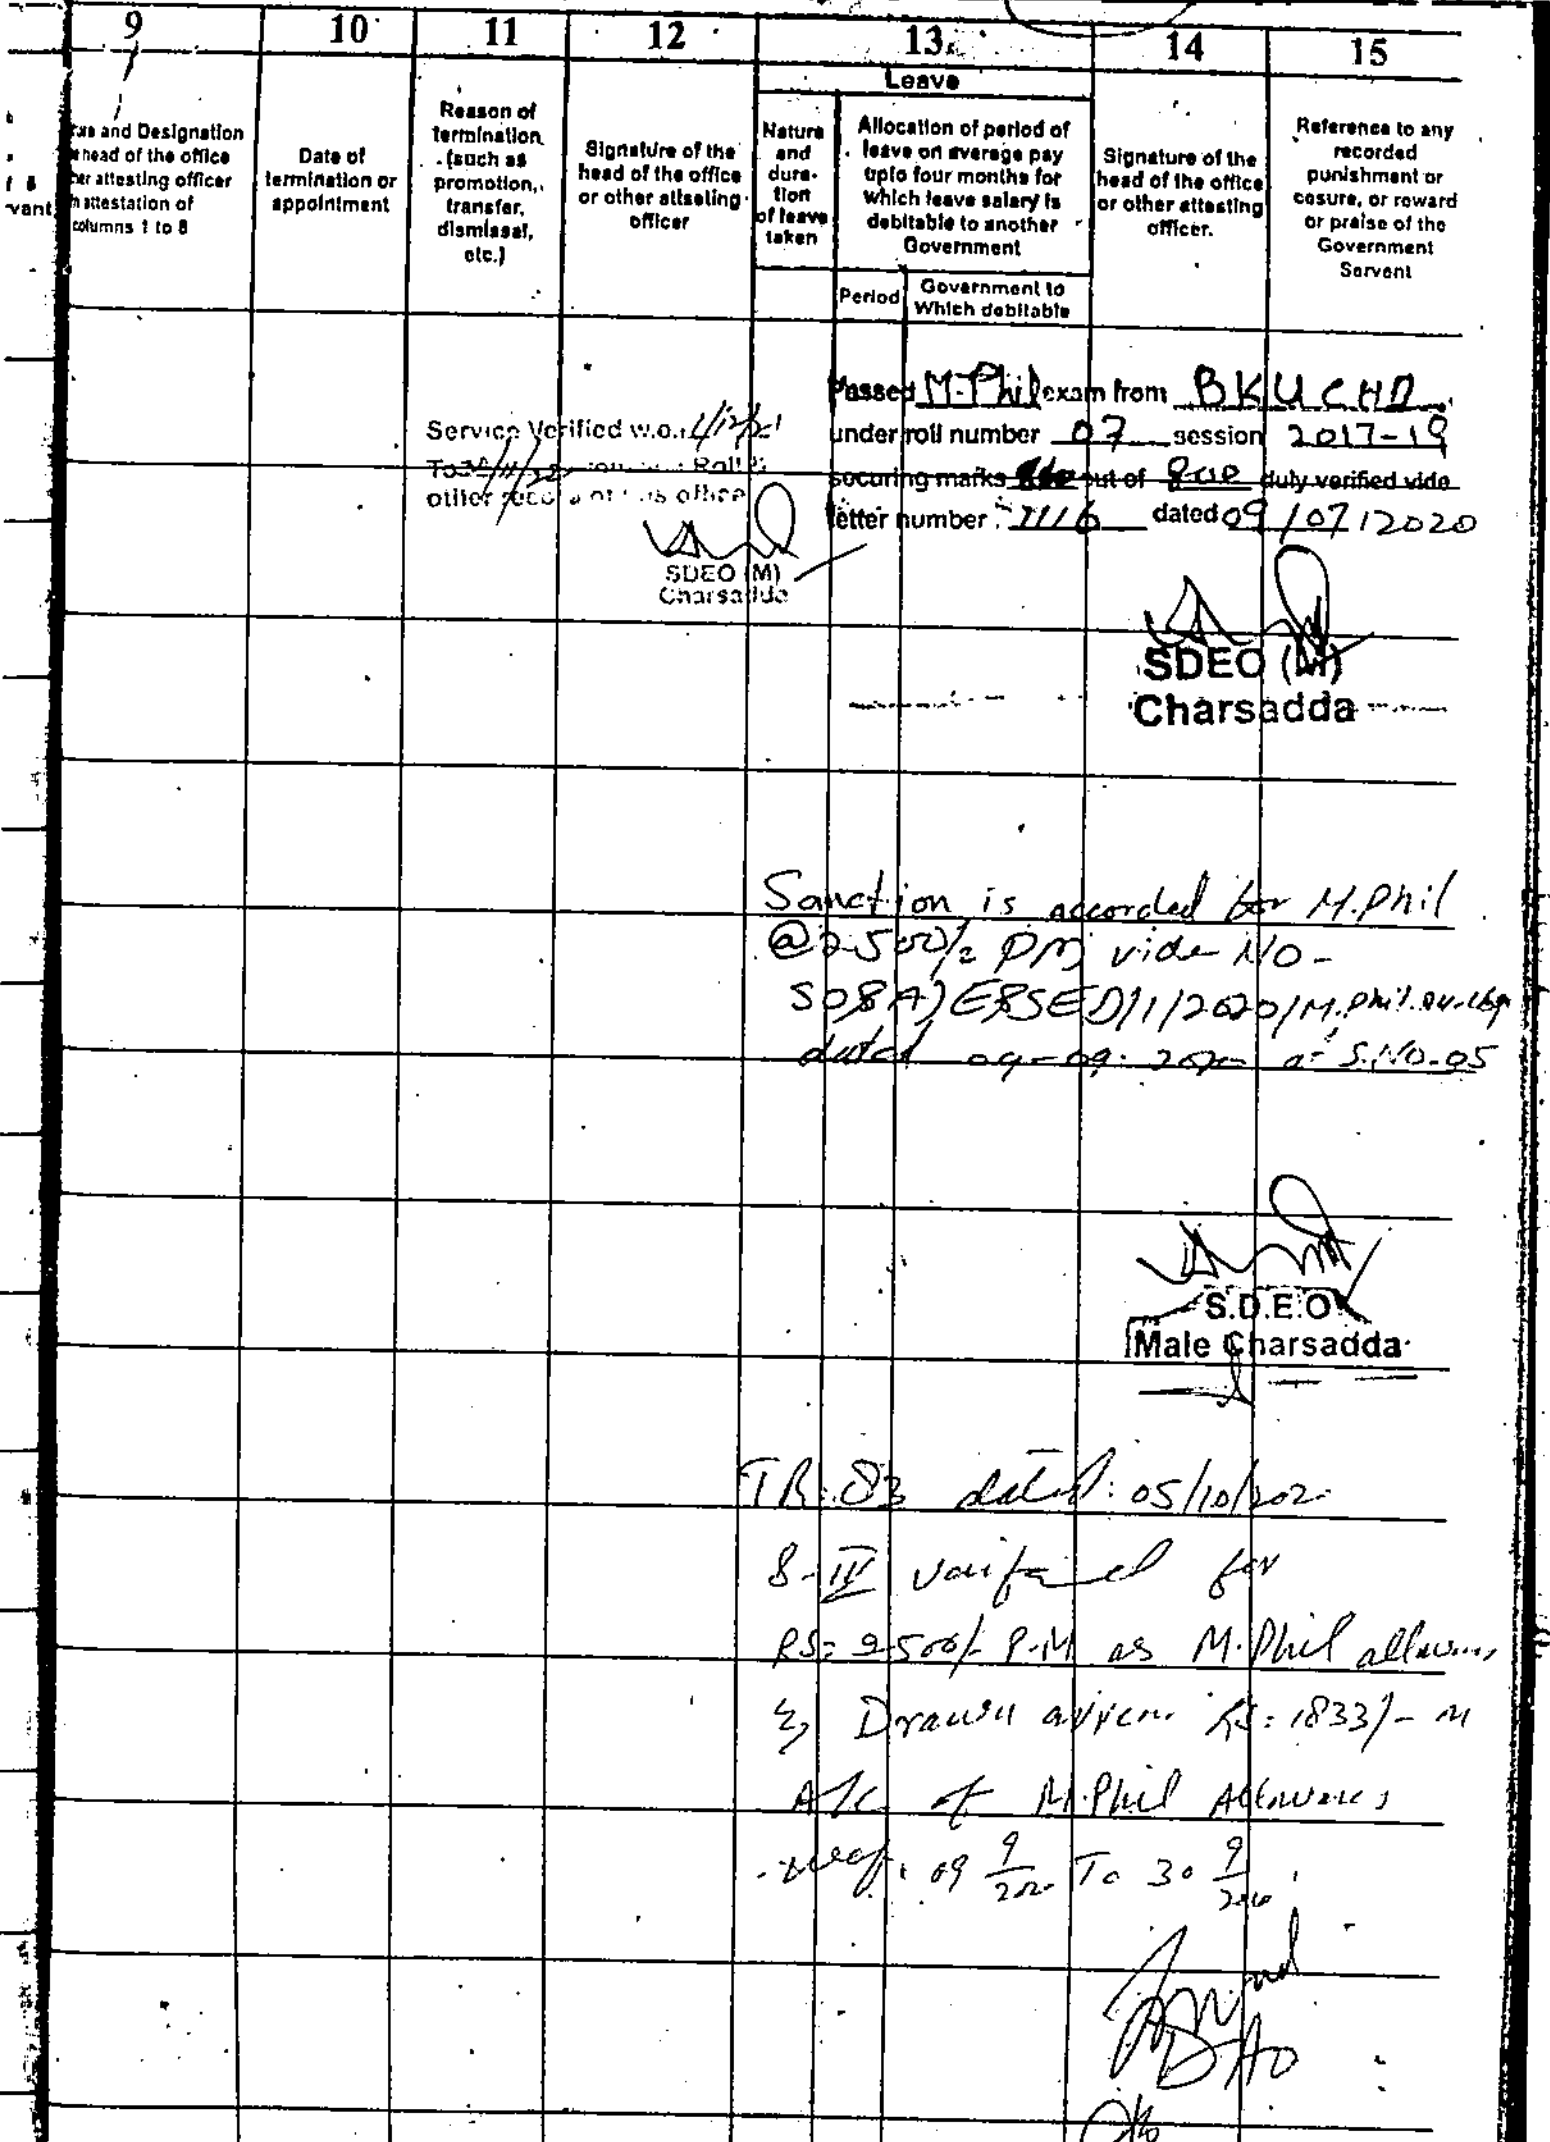 9 10 11 12 13 14 15
Leave
and Designation
head of the office
attesting officer
attestation of
columns 1 to 8
Date of
termination or
appointment
Reason of
termination
(such as
promotion,
transfer,
dismissal,
etc.)
Signature of the
head of the office
or other attseting
officer
Nature
and
dura-
tion
of leave
taken
Allocation of period of
leave on average pay
upto four months for
which leave salary is
debitable to another
Government
Period
Government to
Which debitable
Signature of the
head of the office
or other attesting
officer.
Reference to any
recorded
punishment or
cosure, or reward
or praise of the
Government
Servent
vant
Passed M.Phil exam from BKUCHD
under roll number 07 session 2017-19
securing marks out of duly verified vide
letter number 1116 dated 09/07/2020
Service Verified w.e.f
To Roll &
other record of this office
SDEO (M)
Charsadda
SDEO (M)
Charsadda
Sanction is accorded for M.Phil
@2500/= PM vide NO-
dated 09-09-2020 at S.NO-05
S.D.E.O
Male Charsadda
TR: 83 dated: 05/10/202
for
RS= 2500/- P.M as M.Phil
Drawn RS: 1833/-
A/c of M.Phil
09 9 To 30 9
DAO